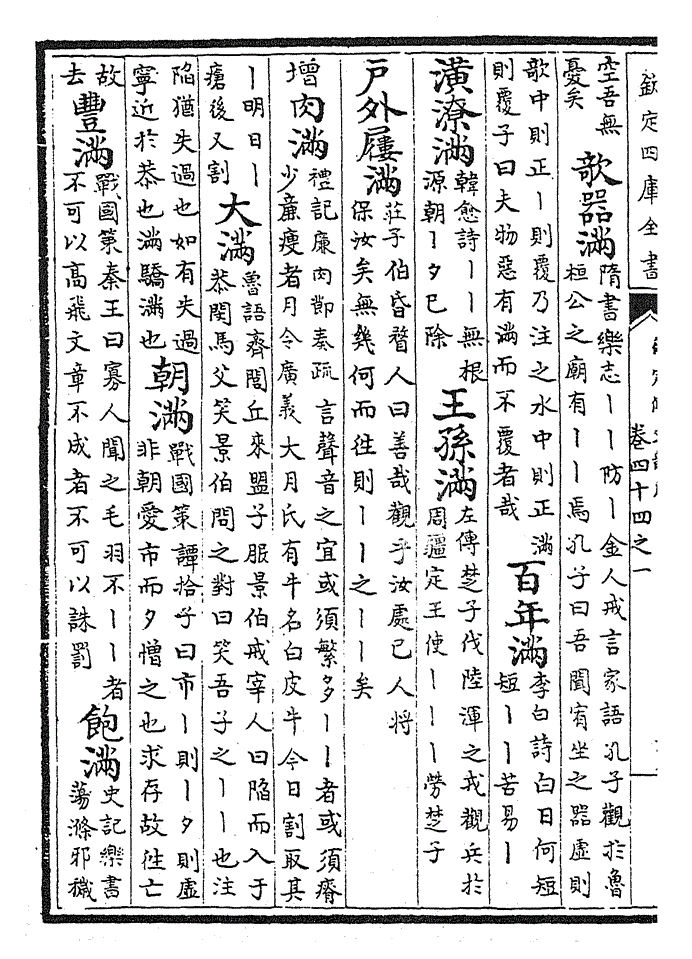 欽定四庫全書
卷四十四之一
空吾無
憂矣
欹器滿
隋書樂志丨丨防丨金人戒言家語孔子觀於魯
桓公之廟有丨丨焉孔子曰吾聞宥坐之器虛則
歌中則正丨則覆乃注之水中則正滿
則覆子曰夫物惡有滿而不覆者哉
百年滿
李白詩白日何短
短丨丨苦易丨
潢潦滿
韓愈詩丨丨無根
源朝丨夕已除
王孫滿
左傳楚子伐陸渾之戎觀兵於
周疆定王使丨丨丨勞楚子
戸外屨滿
莊子伯昏瞀人曰善哉觀乎汝處已人將
保汝矣無幾何而徃則丨丨之丨丨矣
增
肉滿
禮記廉肉節奏疏言聲音之宜或須繁多丨丨者或須瘠
少亷瘦者月令廣義大月氏有牛名白皮牛今日割取其
丨明日丨
瘡後又割
大滿
魯語齊閭丘來盟子服景伯戒宰人曰陷而入于
恭閔馬父笑景伯問之對曰笑吾子之丨丨也注
陷猶失過也如有失過
寧近於恭也滿驕滿也
朝滿
戰國策譚拾子曰市丨則丨夕則虛
非朝愛市而夕憎之也求存故徃亡
故
去
豐滿
戰國策秦王曰寡人聞之毛羽不丨丨者
不可以高飛文章不成者不可以誅罰
飽滿
史記樂書
蕩滌邪穢